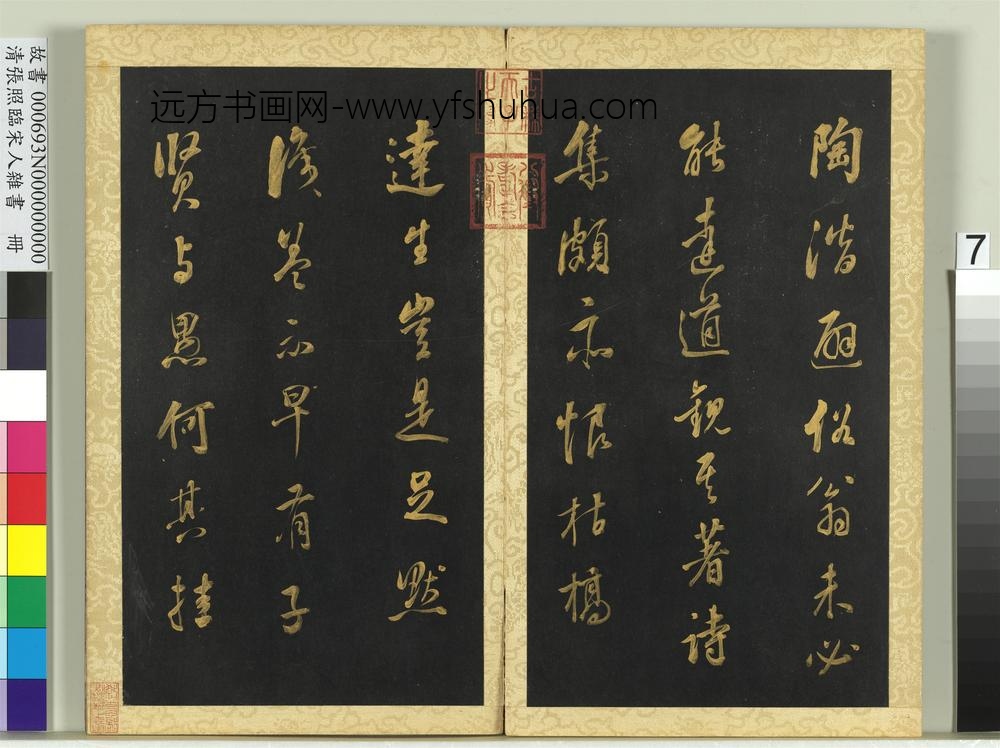 陶潛避俗翁未必
能達道觀其著詩
集頗亦恨枯槁
達生豈是足默
識蓋不早有子
賢与愚何其挂
远方书画网-www.yfshuhua.com
故書 000693N000000000
清張照臨宋人雜書 冊
7